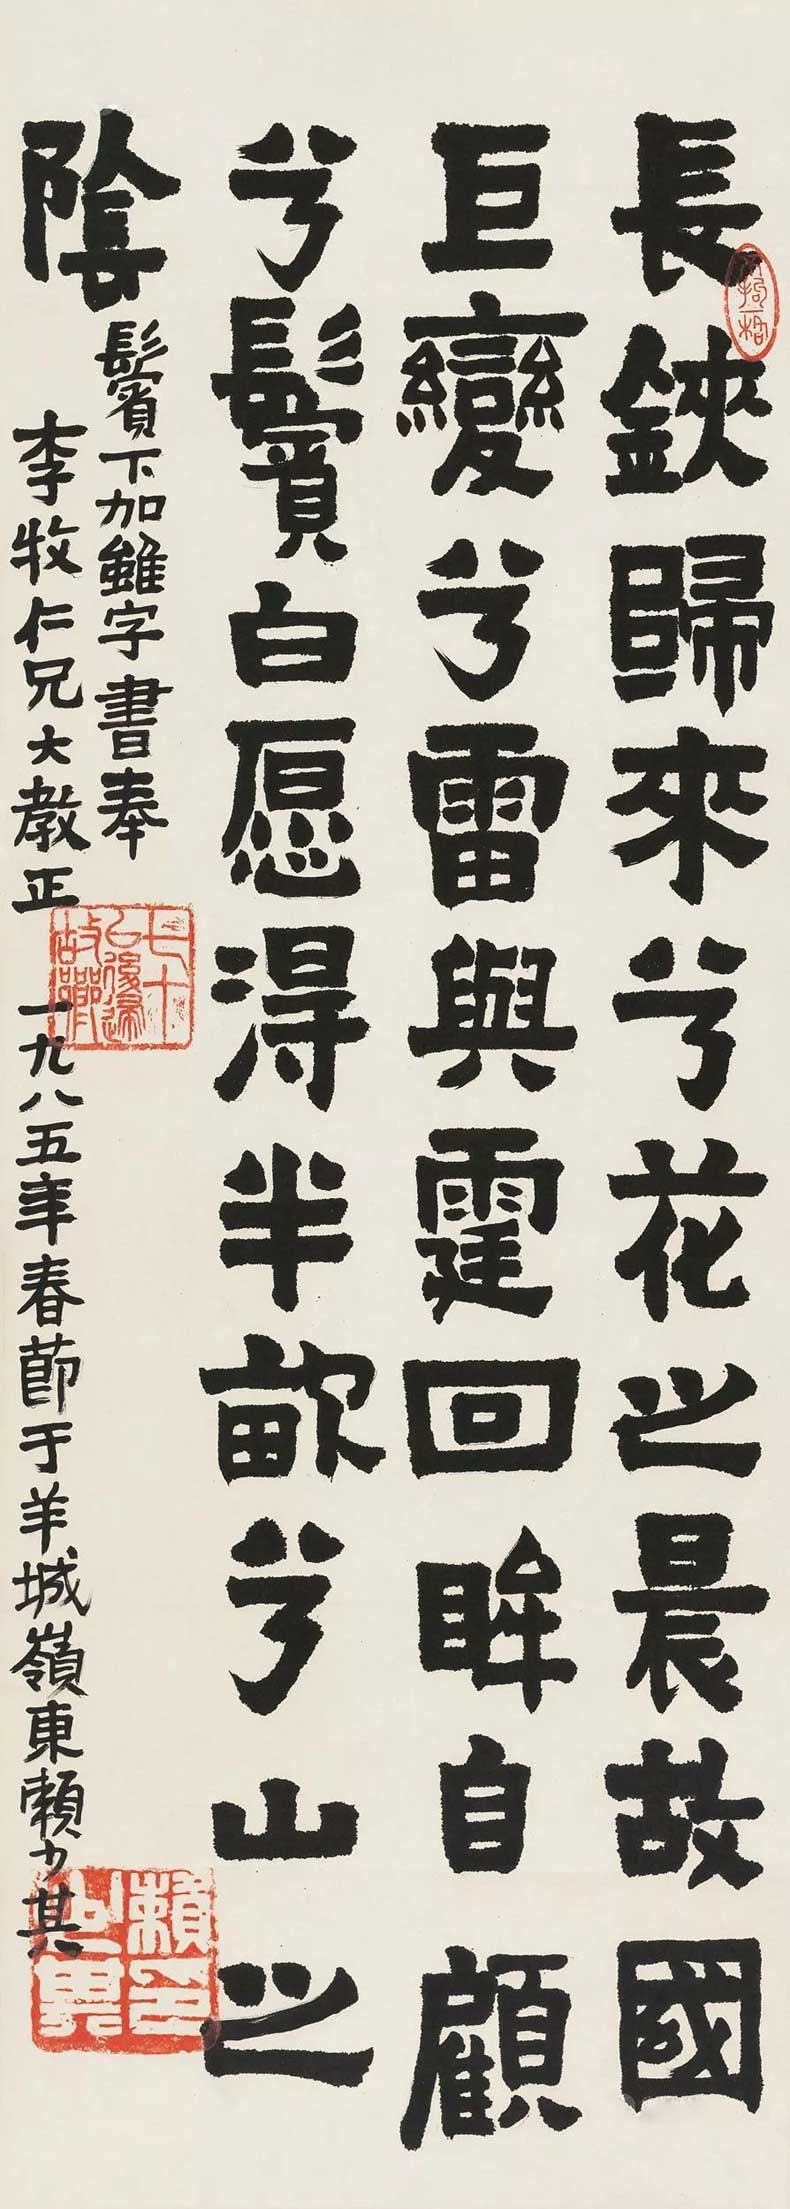 長鋏歸來兮花之晨故國
巨變兮雷與霆回眸自顧
兮鬢白愿得半畝兮山之
陰
鬢下加雖字書奉
李牧仁兄大教正
一九八五年春節于羊城嶺東賴少其